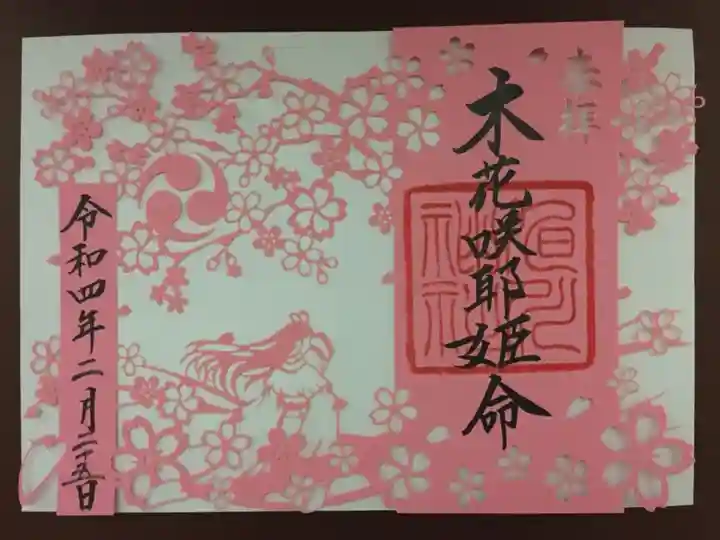 奉拝
木花咲耶姫命
令和四年二月二十五日